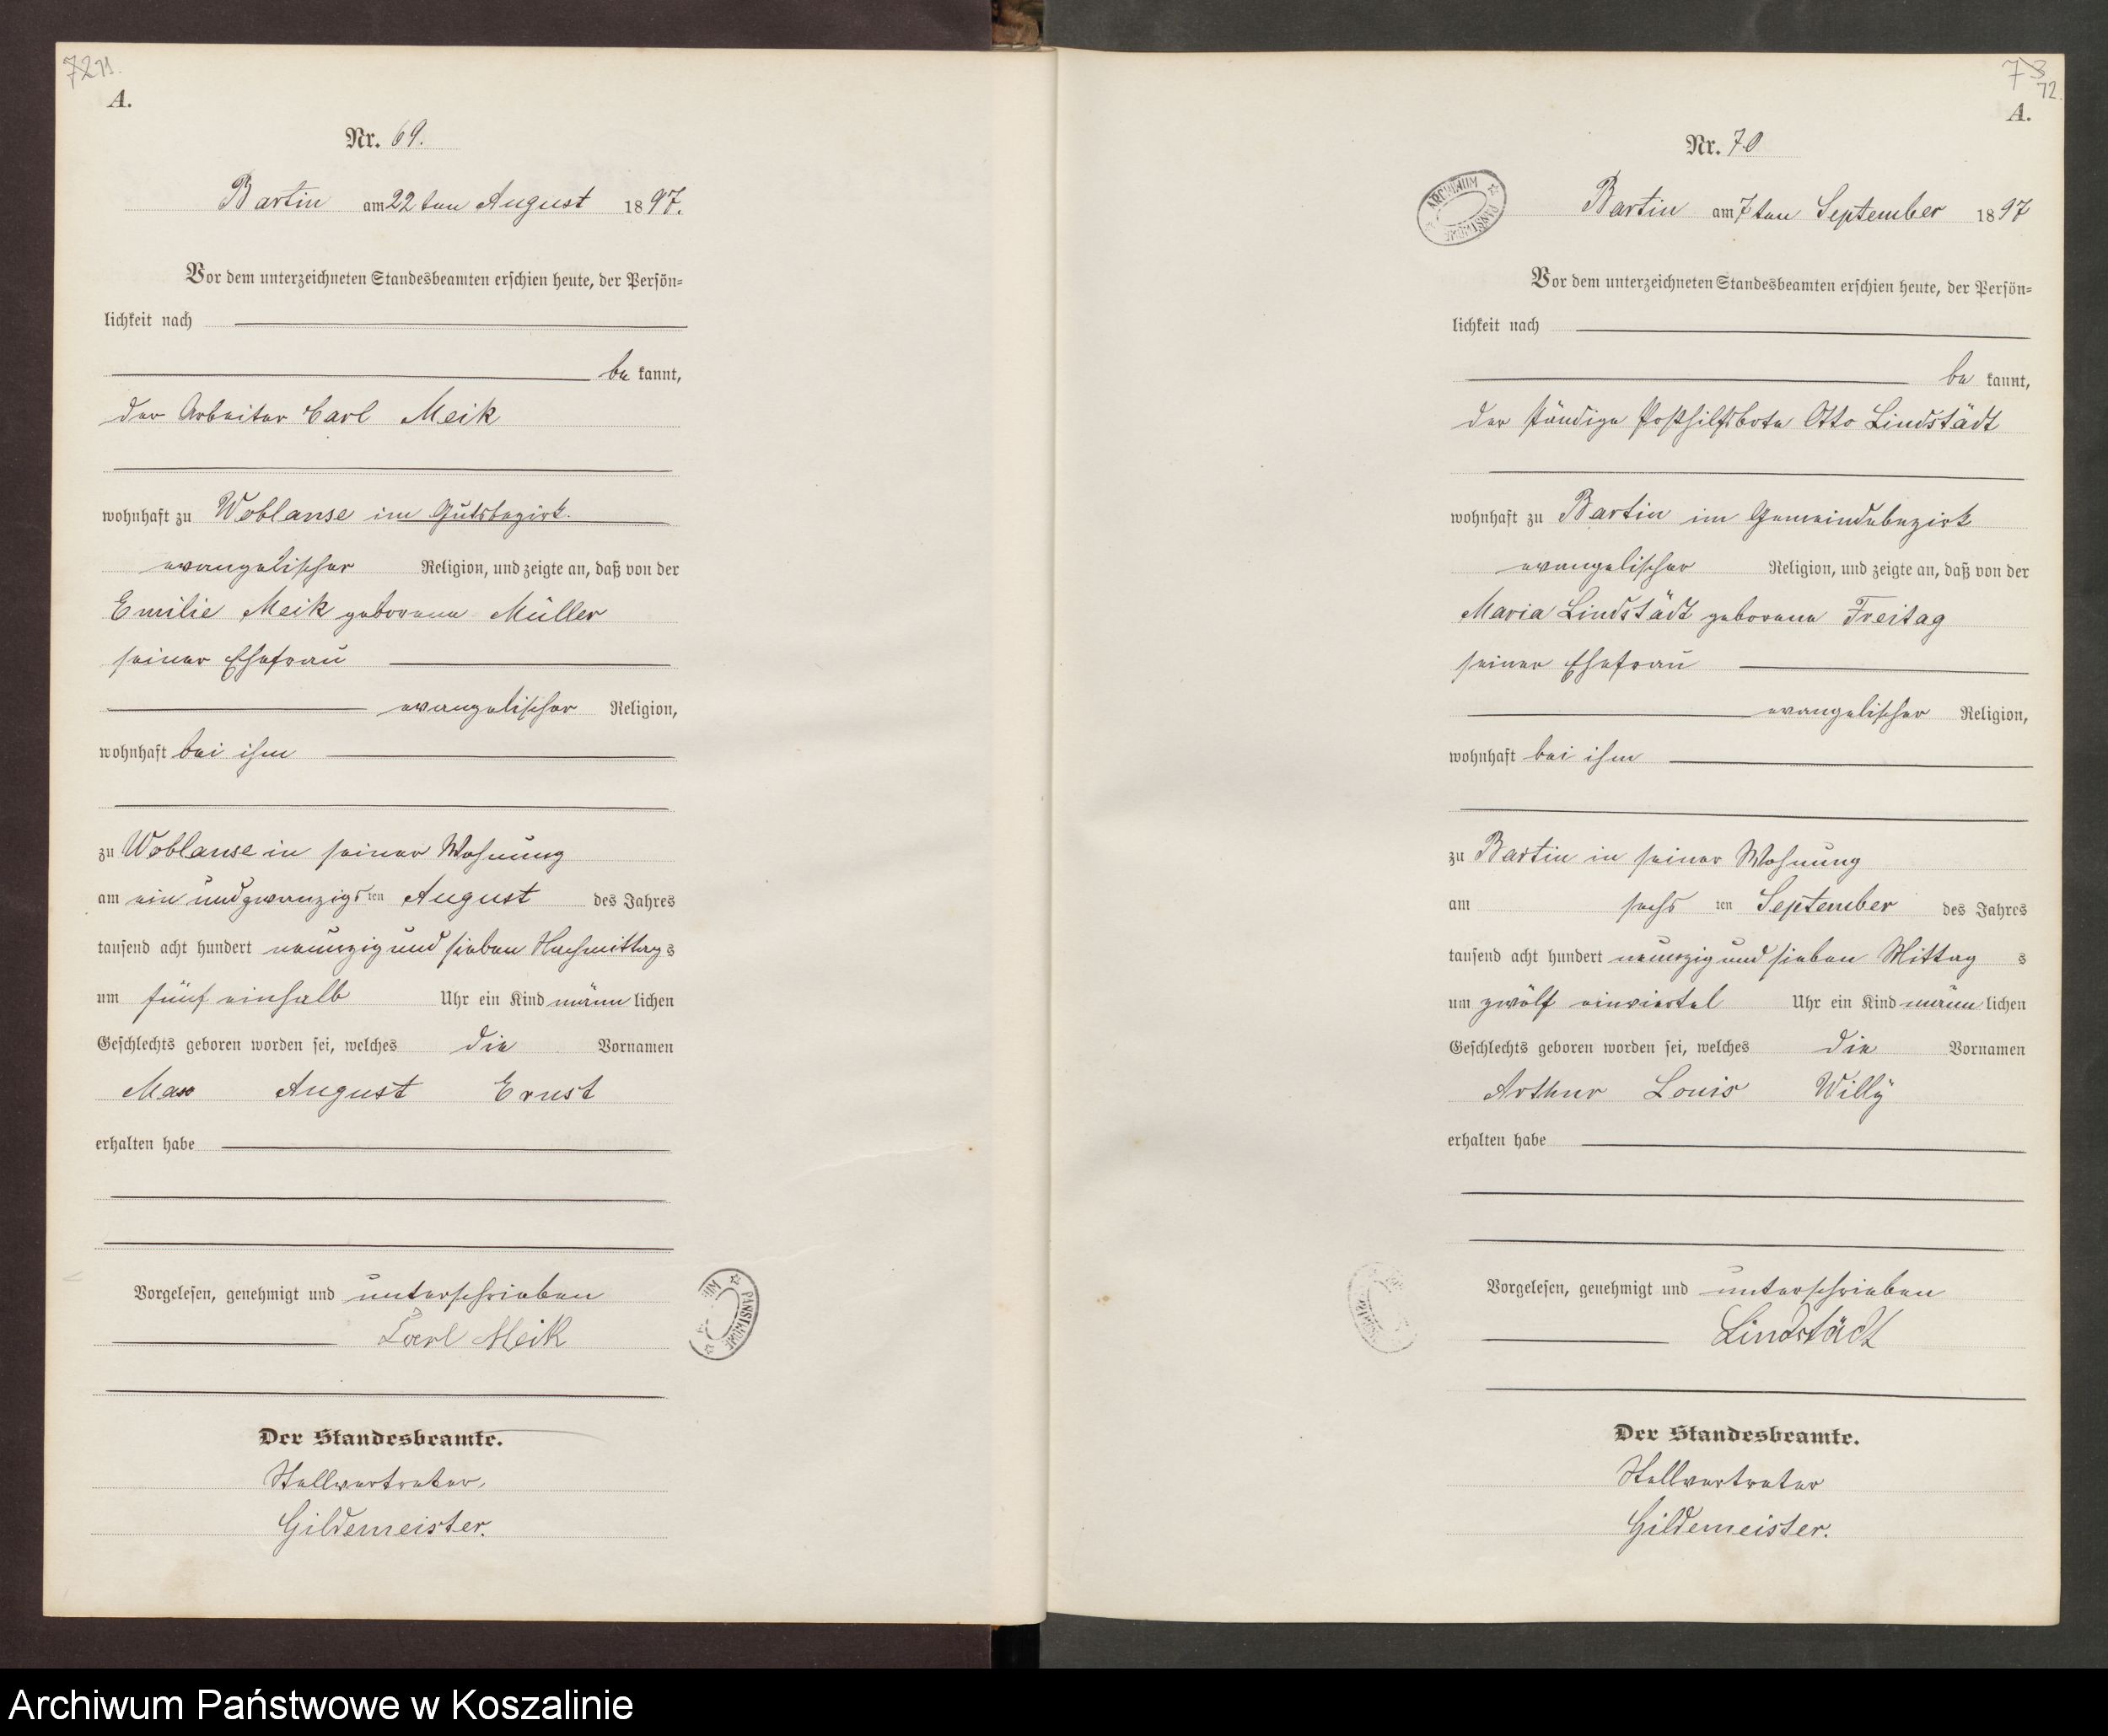 7211.
A.
Nr. 69.
Bartin am 22ten August 1897.
Vor dem unterzeichneten Standesbeamten erschien heute, der Persön=
lichkeit nach
be kannt,
der Arbeiter Carl Meik
wohnhaft zu Woblanse im Gutsbezirk.
evangelischer Religion, und zeigte an, daß von der
Emilie Meik geborene Müller
seiner Ehefrau
evangelischer Religion,
wohnhaft bei ihm
zu Woblanse in seiner Wohnung
am ein und zwanzigsten August des Jahres
tausend acht hundert neunzig und sieben Nachmittags
um fünf einhalb Uhr ein Kind männlichen
Geschlechts geboren worden sei, welches die Vornamen
Max August Ernst
erhalten habe
Vorgelesen, genehmigt und unterschrieben
Carl Meik
Der Standesbeamte.
Stellvertreter.
Gildemeister.
73
72.
A.
Nr. 70
ARCHIWUM PAŃSTWOWE
Bartin am 7ten September 1897
Vor dem unterzeichneten Standesbeamten erschien heute, der Persön=
lichkeit nach
be kannt,
der ständige Posthilfsbote Otto Lindstädt
wohnhaft zu Bartin im Gemeindebezirk
evangelischer Religion, und zeigte an, daß von der
Maria Lindstädt geborene Freitag
seiner Ehefrau
evangelischer Religion,
wohnhaft bei ihm
zu Bartin in seiner Wohnung
am sechsten September des Jahres
tausend acht hundert neunzig und sieben Mittags
um zwölf einviertel Uhr ein Kind männlichen
Geschlechts geboren worden sei, welches die Vornamen
Arthur Louis Willy
erhalten habe
Vorgelesen, genehmigt und unterschrieben
Lindstädt
Der Standesbeamte.
Stellvertreter
Gildemeister.
Archiwum Państwowe w Koszalinie